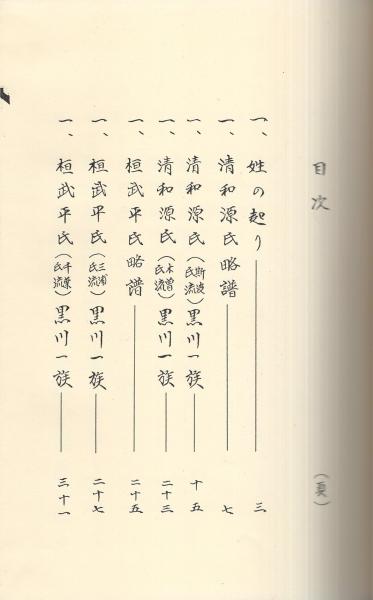 目次 （頁）
一、姓の起り――――三
一、清和源氏略譜――――七
一、清和源氏（斯波氏流）黒川一族――――十五
一、清和源氏（木曽氏流）黒川一族――――二十三
一、桓武平氏略譜――――二十五
一、桓武平氏（三浦氏流）黒川一族――――二十七
一、桓武平氏（千葉氏流）黒川一族――――三十一